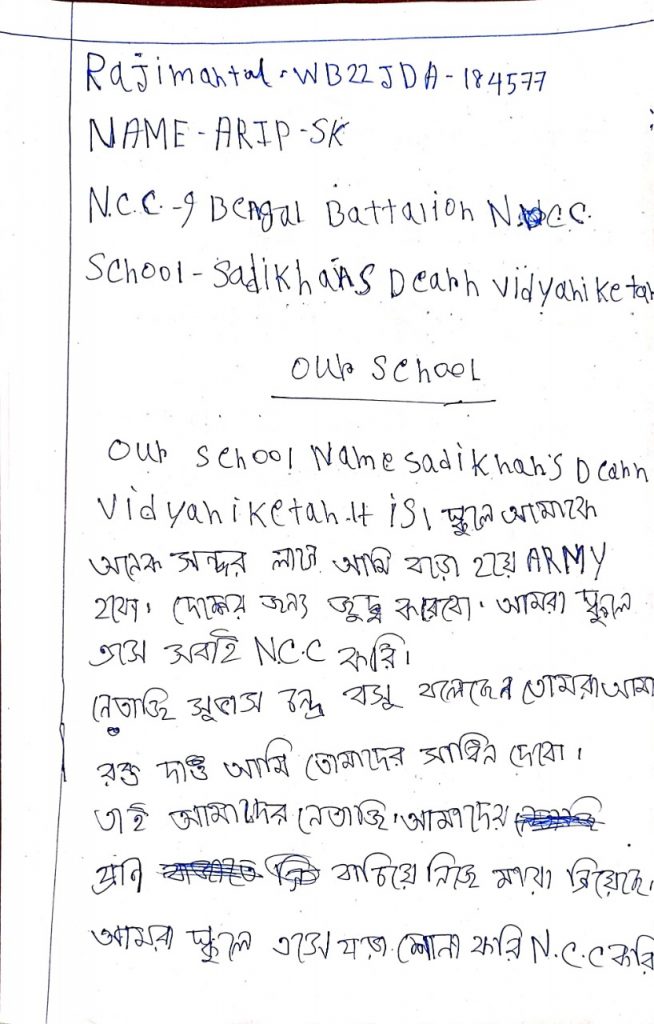 Rajimantal. WB22JDA-184577
NAME-ARIP-SK
N.C.C.-9 Bengal Battalion N.CC.
School-Sadikhans Dearh Vidyaniketan
Our School
Our School Name Sadikhan's Dearh
Vidyaniketan. It is, স্কুলে আমাকে
অনেক সন্দর লাগে আমি বড়ো হয়ে ARMY
হবো। দেশের জন্য জুদ্ধ করবো। আমরা স্কুলে
এসে সবাই N.C.C করি।
নেতাজি সুভাস চন্দ্র বসু বলেছেন তোমরা আমা
রক্ত দাও আমি তোমাদের সাধিন দেবো।
তাই আমাদের নেতাজি আমাদের
প্রান বাচিয়ে নিজে মারা গিয়েছে।
আমরা স্কুলে এসে পড়া শোনা করি N.C.C করি